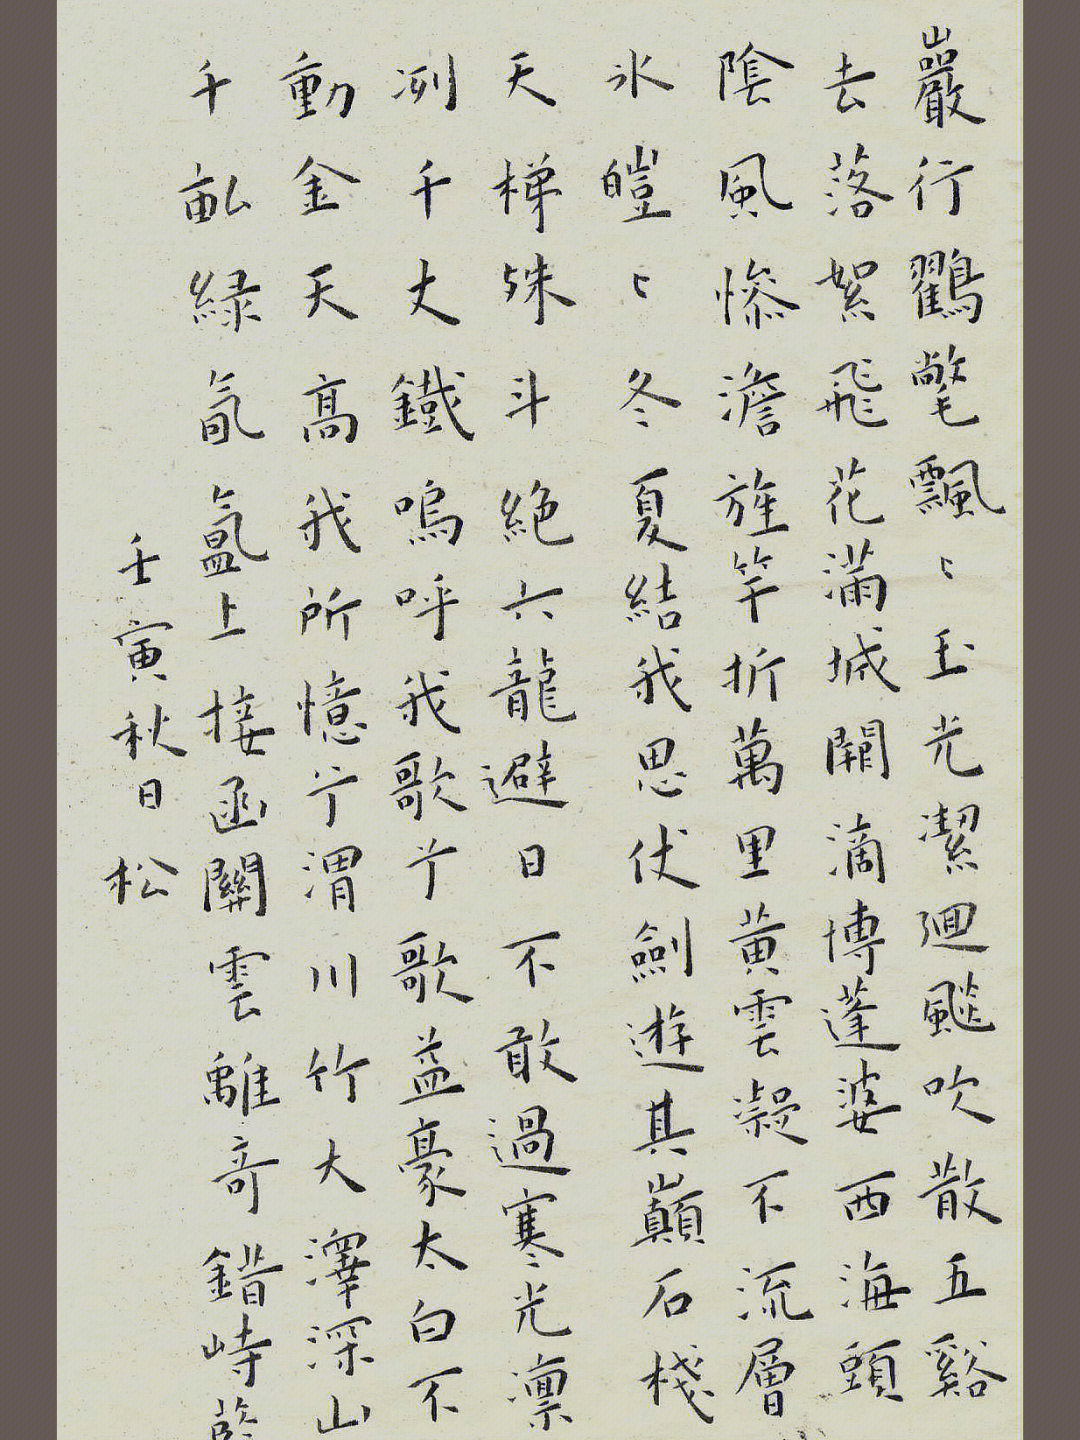 巖行鸛氅飄〻玉光潔迴飈吹散五谿
去落絮飛花滿城闕滴博蓬婆西海頭
陰風慘澹旌竿折萬里黃雲凝不流層
冰皚〻冬夏結我思伏劍遊其巔石棧
天梯殊斗絶六龍避日不敢過寒光凛
冽千丈鐵嗚呼我歌兮歌益豪太白不
動金天高我所憶兮渭川竹大澤深山
千畝緑氤氳上接函關雲離奇錯峙
壬寅秋日松